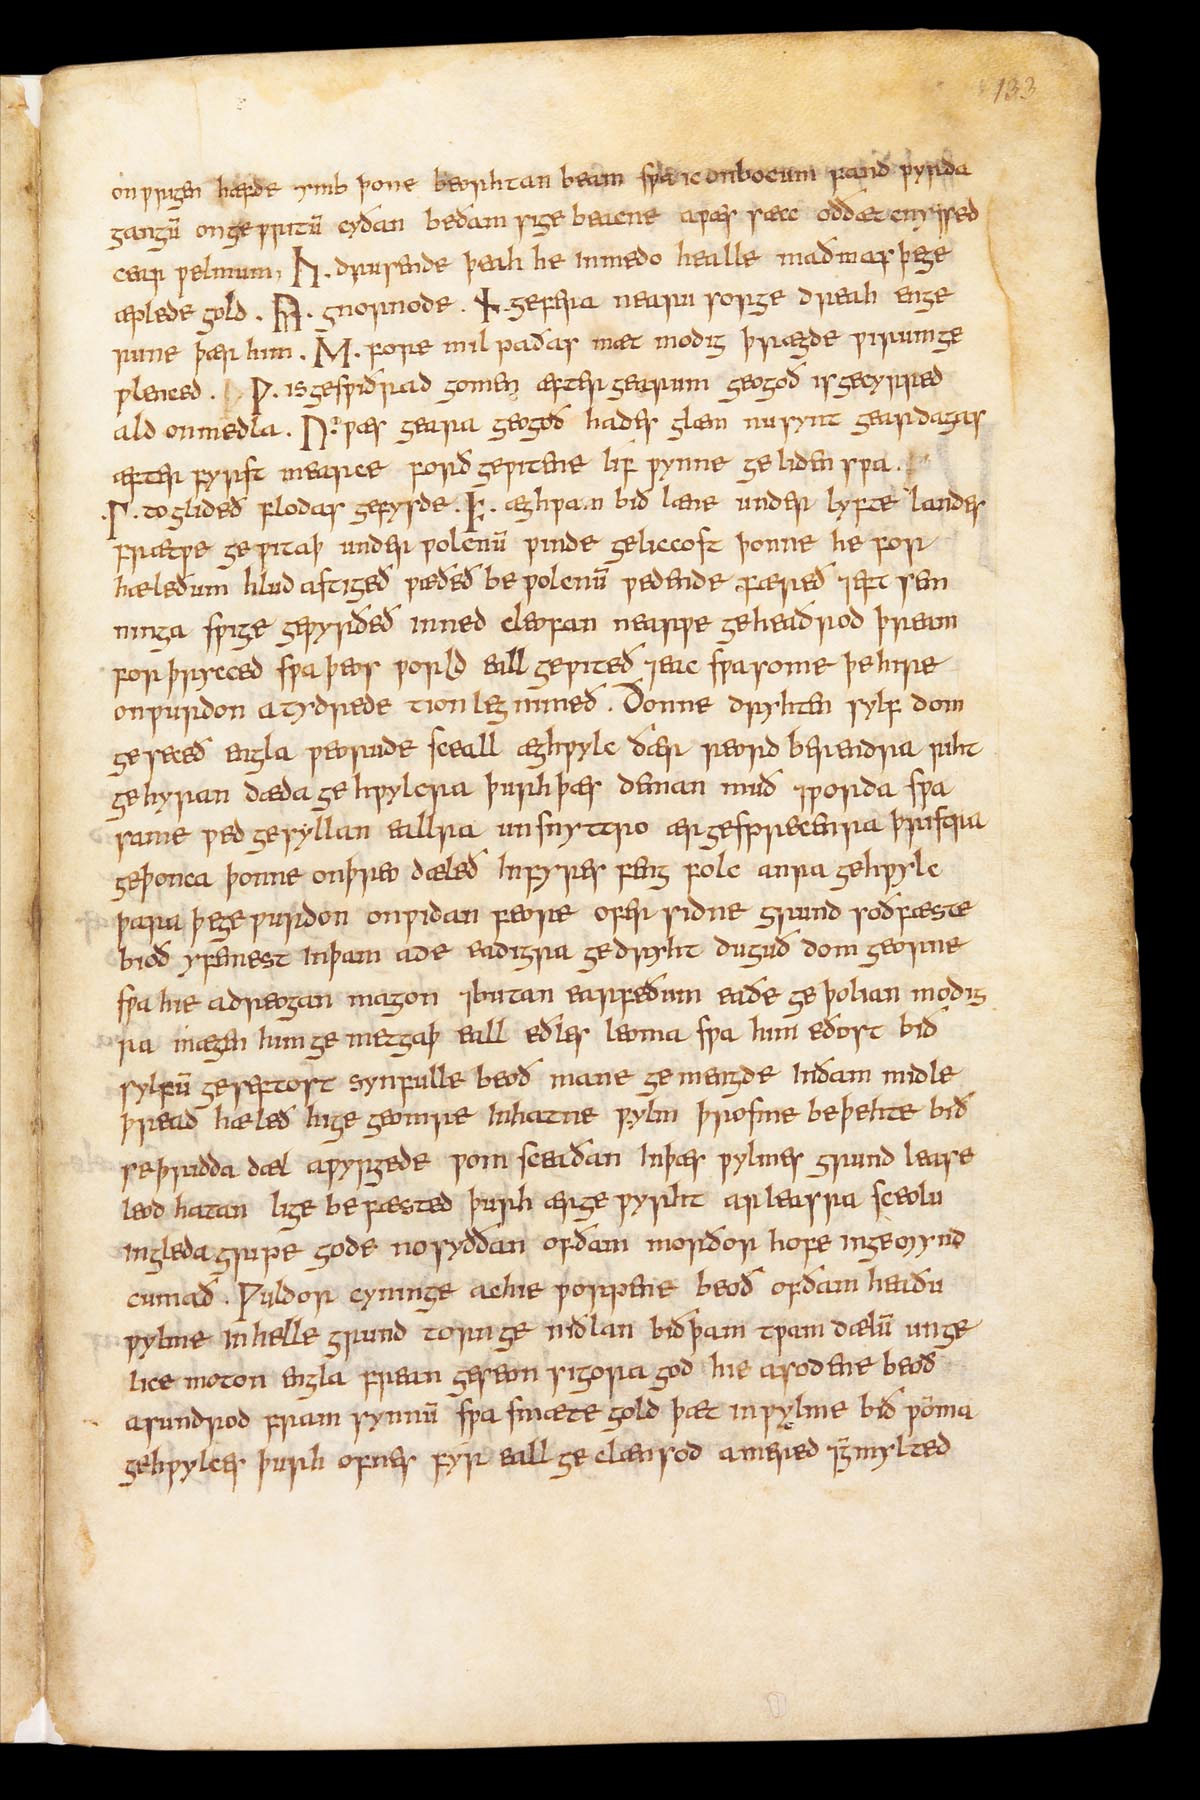 133
onwrigen hæfde ymb þone beorhtan beam swa ic on bocum fand wyrda
gangū on gewritū cyðan be ðam sige beacne a wæs sæcc oððæt cnyssed
cearwelmum, ᚳ. drusende þeah he in medo healle maðmas þege
æplede gold. ᚣ. gnornode. ᚾ. gefera nearu sorge dreah enge
rune þær him. ᛖ. fore mil paðas mæt modig þrægde wirum ge
wlenced. ᚹ. is geswiðrad gomen æfter gearum geogoð is gecyrred
ald onmedla. ᚢ. wæs geara geogoð hades glæm nu synt geardagas
æfter fyrst mearce forð gewitene lif wynne geliden swa.
.ᛚ. toglideð flodas gefysde. ᚠ. æghwam bið læne under lyfte landes
frætwe gewitaþ under wolcnū winde geliccost þonne he for
hæleðum hlud astigeð wæðeð be wolcnū wedende færeð ⁊ eft sem
ninga swige gewyrðeð in ned cleofan nearwe geheaðrod þream
forþrycced swa þeos world eall gewiteð ⁊ eac swa some þe hire
on wurdon atydrede tionleg nimeð. Ðonne dryhten sylf dom
geseceð engla weorude sceall æghwylc ðær reordberendra riht
gehyran dæda gehwylcra þurh þæs deman muð ⁊ worda swa
same wed gesyllan eallra unsnyttro ær gesprecenra þristra
geþonca þonne on þreo dæleð in fyres feng folc anra gehwylc
þara þe gewurdon on widan feore ofer sidne grund soðfæste
bioð yfemest in þam ade eadigra gedryht duguð domgeorne
swa hie adreogan magon ⁊ butan earfeðum eaðe geþolian modig
ra mægen him gemetgaþ eall eðles leoma swa him eðost bið
sylfū geseftost synfulle beoð mane gemengde in ðam midle
þread hæleð higegeomre in hatne wylm þrosme beþehte bið
se þridda dæl awyrgede womsceaðan in þæs wylmes grund lease
leodhatan lige befæsted þurh ærgewyrht arleasra sceolu
in gleda gripe gode no syððan of ðam morðorhofe in gemynd
cumað. Wuldorcyninge ac hie worpene beoð of ðam heaðu
wylme in helle grund torngeniðlan bið þam twam dælū unge
lice moton engla frean geseon sigora god hie asodene beoð
asundrod fram synnū swa smæte gold þæt in wylme bið womma
gehwylces þurh ofnes fyr eall geclænsod amered ⁊ gemylted